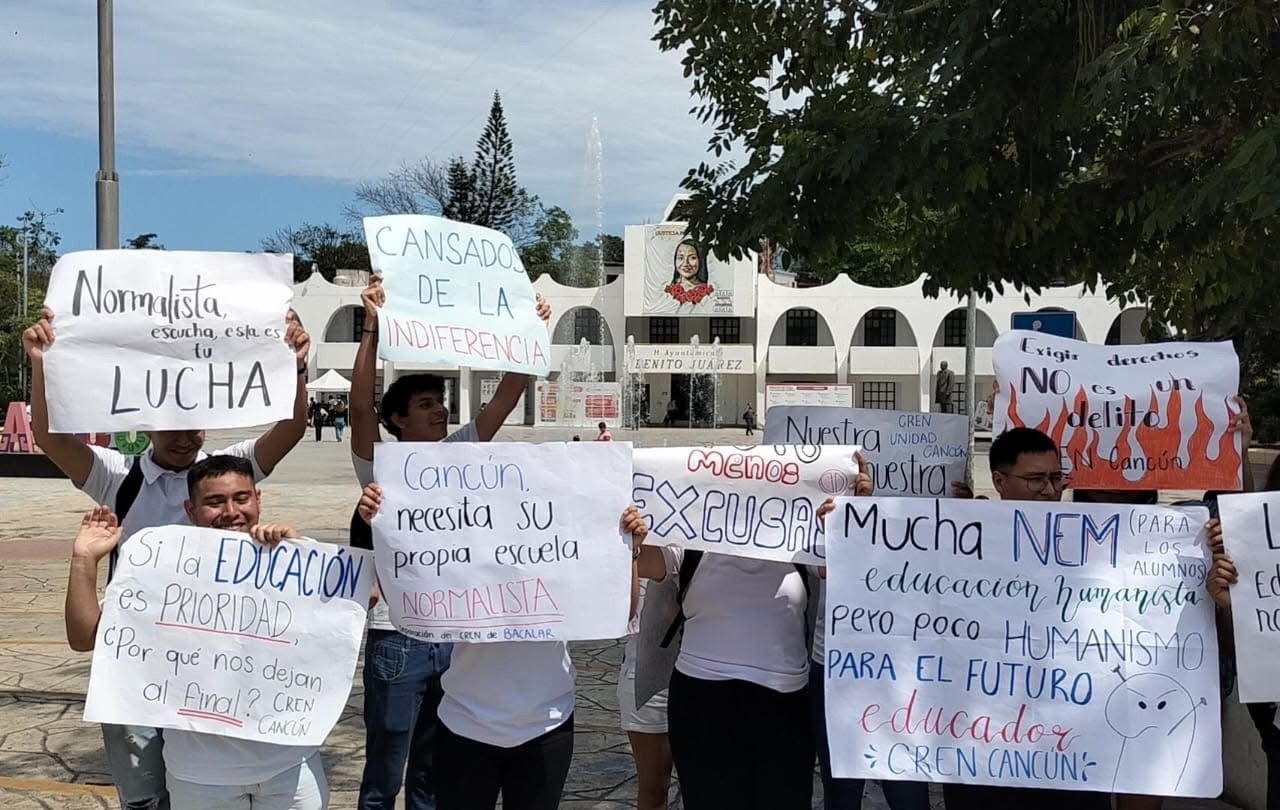 Normalista,
escucha, esta es
tu
LUCHA
CANSADOS
DE LA
INDIFERENCIA
H. Ayuntamiento
BENITO JUÁREZ
Exigir derechos
NO es un
delito
EN Cancún
Nuestra
CREN
UNIDAD
CANCÚN
nuestra
Menos
EXCUSAS
Cancún
necesita su
propia escuela
NORMALISTA
del CREN de BACALAR
Si la EDUCACIÓN
es PRIORIDAD,
¿Por qué nos dejan
al final? CREN
CANCÚN
Mucha NEM (PARA
LOS
ALUMNOS)
educación humanista
pero poco HUMANISMO
PARA EL FUTURO
educador
CREN CANCÚN